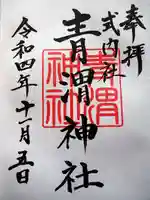 奉拝
式内社
青渭神社
令和四年十一月五日